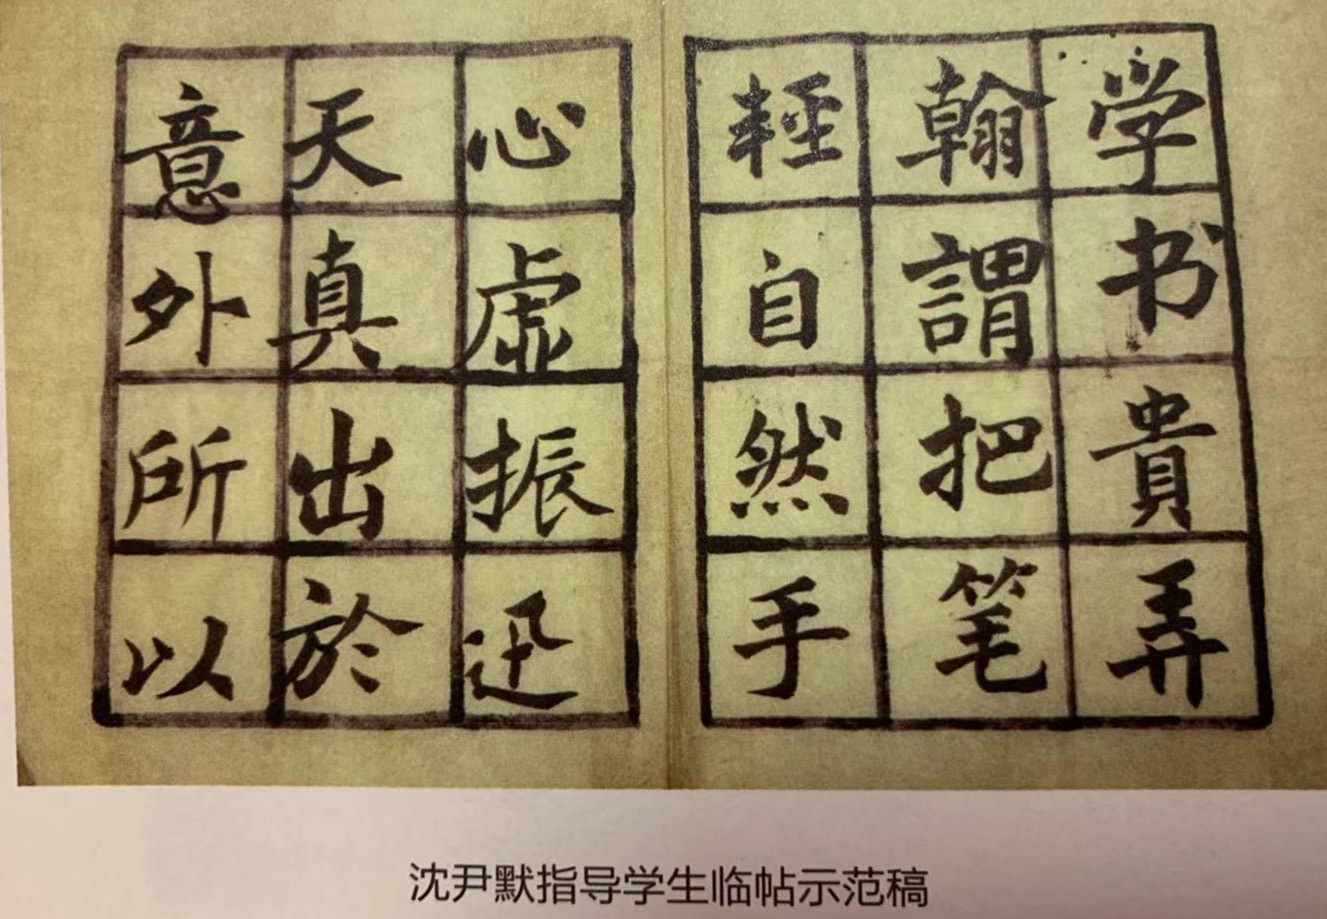 学书貴弄
翰謂把笔
輕自然手
心虚振迅
天真出於
意外所以
沈尹默指导学生临帖示范稿